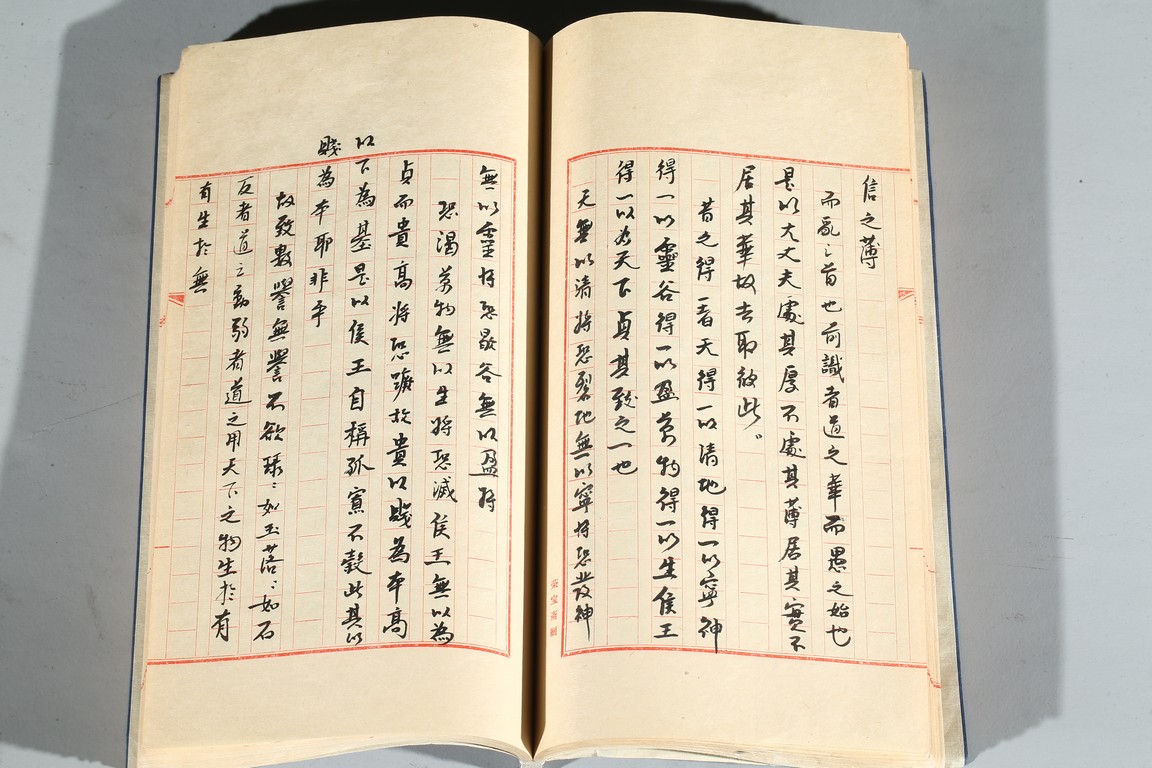 信之薄
而亂之首也前識者道之華而愚之始也
是以大丈夫處其厚不處其薄居其實不
居其華故去取彼此
昔之得一者天得一以清地得一以寧神
得一以靈谷得一以盈萬物得一以生侯王
得一以為天下貞其致之一也
天無以清將恐裂地無以寧將恐發神
榮寶齋
無以靈將恐歇谷無以盈將
恐渴萬物無以生將恐滅侯王無以為
貞而貴高將恐蹶故貴以賤為本高
以下為基是以侯王自稱孤寡不穀此其以
賤為本耶非乎
故致數譽無譽不欲琭〻如玉落〻如石
反者道之動弱者道之用天下之物生於有
有生於無